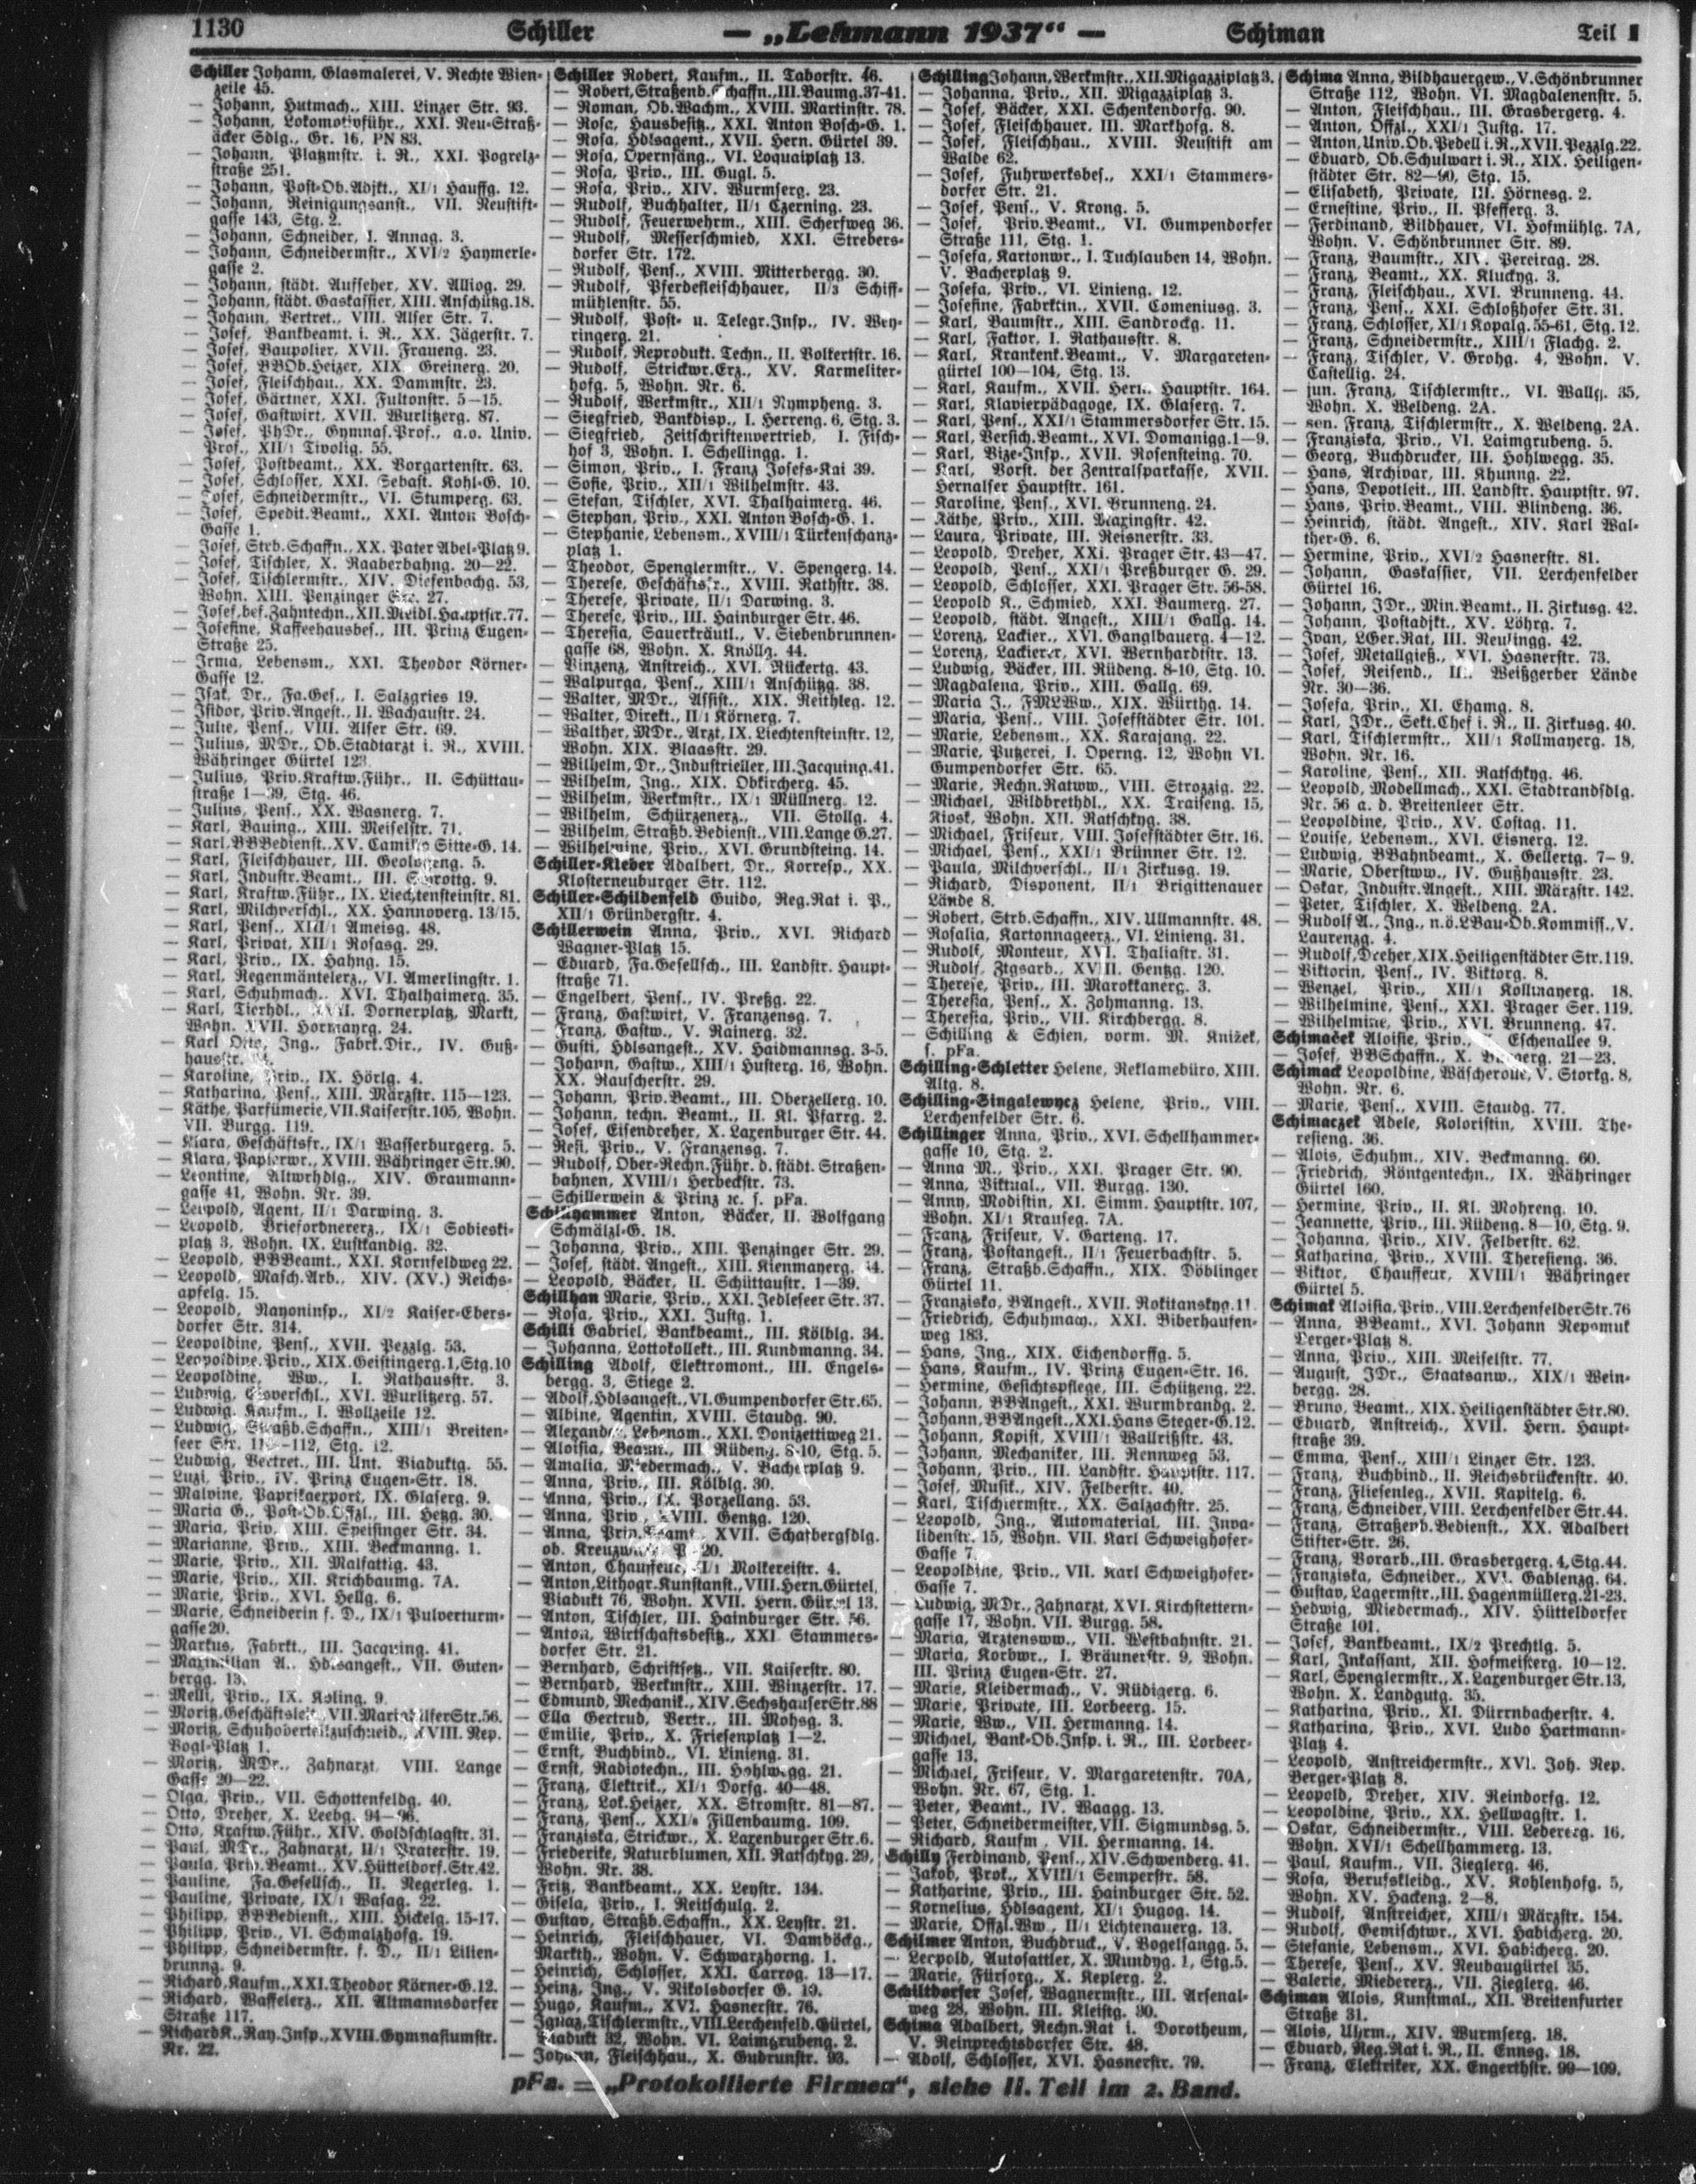 1130 Schiller — „Lehmann 1937“ — Schiman Teil I
Schiller Johann, Glasmalerei, V. Rechte Wien-
zeile 45.
— Johann, Hutmach., XIII. Linzer Str. 93.
— Johann, Lokomotivführ., XXI. Neu-Straß-
äcker Sdlg., Gr. 16, PN 83.
— Johann, Platzmstr. i. R., XXI. Pogrelz-
straße 251.
— Johann, Post-Ob.Adjkt., XI/1 Hauffg. 12.
— Johann, Reinigungsanst., VII. Neustift-
gasse 143, Stg. 2.
— Johann, Schneider, I. Annag. 3.
— Johann, Schneidermstr., XVI/2 Haymerle-
gasse 2.
— Johann, städt. Aufseher, XV. Alliog. 29.
— Johann, städt. Gaskassier, XIII. Anschützg. 18.
— Johann, Vertret., VIII. Alser Str. 7.
— Josef, Bankbeamt. i. R., XX. Jägerstr. 7.
— Josef, Baupolier, XVII. Fraueng. 23.
— Josef, BBOb.Heizer, XIX. Greinerg. 20.
— Josef, Fleischhau., XX. Dammstr. 23.
— Josef, Gärtner, XXI. Fultonstr. 5—15.
— Josef, Gastwirt, XVII. Wurlitzerg. 87.
— Josef, PhDr., Gymnas.Prof., a.o. Univ.
Prof., XII/1 Tivolig. 55.
— Josef, Postbeamt., XX. Vorgartenstr. 63.
— Josef, Schlosser, XXI. Sebast. Kohl-G. 10.
— Josef, Schneidermstr., VI. Stumperg. 63.
— Josef, Spedit.Beamt., XXI. Anton Bosch-
Gasse 1.
— Josef, Strb.Schaffn., XX. Pater Abel-Platz 9.
— Josef, Tischler, X. Raaberbahng. 20—22.
— Josef, Tischlermstr., XIV. Diefenbachg. 53,
Wohn. XIII. Penzinger Str. 27.
— Josef, bef. Zahntechn., XII. Meidl. Hauptstr. 77.
— Josefine, Kaffeehausbes., III. Prinz Eugen-
Straße 25.
— Irma, Lebensm., XXI. Theodor Körner-
Gasse 12.
— Isak, Dr., Fa.Ges., I. Salzgries 19.
— Isidor, Priv.Angest., II. Wachaustr. 24.
— Julie, Pens., VIII. Alser Str. 69.
— Julius, MDr., Ob.Stadtarzt i. R., XVIII.
Währinger Gürtel 123.
— Julius, Priv.Kraftw.Führ., II. Schüttau-
straße 1—39, Stg. 46.
— Julius, Pens., XX. Wasnerg. 7.
— Karl, Bauing., XIII. Meiselstr. 71.
— Karl, BBBedienst., XV. Camillo Sitte-G. 14.
— Karl, Fleischhauer, III. Geologeng. 5.
— Karl, Industr.Beamt., III. Schrottg. 9.
— Karl, Kraftw.Führ., IX. Liechtensteinstr. 81.
— Karl, Milchverschl., XX. Hannoverg. 13/15.
— Karl, Pens., XIII/1 Ameisg. 48.
— Karl, Privat, XII/1 Rosasg. 29.
— Karl, Priv., IX. Hahng. 15.
— Karl, Regenmäntelerz., VI. Amerlingstr. 1.
— Karl, Schuhmach., XVI. Thalhaimerg. 35.
— Karl, Tierhdl., XVII. Dornerplatz, Markt,
Wohn. XVII. Hormayrg. 24.
— Karl Otto, Ing., Fabrk.Dir., IV. Guß-
hausstr.
— Karoline, Priv., IX. Hörlg. 4.
— Katharina, Pens., XIII. Märzstr. 115—123.
— Käthe, Parfümerie, VII. Kaiserstr. 105, Wohn.
VII. Burgg. 119.
— Klara, Geschäftsfr., IX/1 Wasserburgerg. 5.
— Klara, Papierwr., XVIII. Währinger Str. 90.
— Leontine, Altwrhdlg., XIV. Graumann-
gasse 41, Wohn. Nr. 39.
— Leopold, Agent, II/1 Darwing. 3.
— Leopold, Briefordnererz., IX/1 Sobieski-
platz 3, Wohn. IX. Lustkandlg. 32.
— Leopold, BBBeamt., XXI. Kornfeldweg 22.
— Leopold, Masch.Arb., XIV. (XV.) Reichs-
apfelg. 15.
— Leopold, Rayoninsp., XI/2 Kaiser-Ebers-
dorfer Str. 314.
— Leopoldine, Pens., XVII. Pezzlg. 53.
— Leopoldine, Priv., XIX. Geistingerg. 1, Stg. 10
— Leopoldine, Ww., I. Rathausstr. 3.
— Ludwig, Eisverschl., XVI. Wurlitzerg. 57.
— Ludwig, Kaufm., I. Wollzeile 12.
— Ludwig, Straßb.Schaffn., XIII/1 Breiten-
seer Str. —112, Stg. 12.
— Ludwig, Vertret., III. Unt. Viaduktg. 55.
— Luzi, Priv., IV. Prinz Eugen-Str. 18.
— Malvine, Paprikaexport, IX. Glaserg. 9.
— Maria G., Post-Ob.Offzl., III. Hetzg. 30.
— Maria, Priv., XIII. Speisinger Str. 34.
— Marianne, Priv., XIII. Beckmanng. 1.
— Marie, Priv., XII. Malfattig. 43.
— Marie, Priv., XII. Krichbaumg. 7A.
— Marie, Priv., XVI. Hellg. 6.
— Marie, Schneiderin f. D., IX/1 Pulverturm-
gasse 20.
— Markus, Fabrkt., III. Jacquing. 41.
— Maximilian A., Hdlsangest., VII. Guten-
bergg. 13.
— Melli, Priv., IX. Koling. 9.
— Moritz, Geschäftsleit., VII. Mariahilfer Str. 56.
— Moritz, Schuhoberteilzuschneid., XVIII. Nep.
Vogl-Platz 1.
— Moritz, MDr., Zahnarzt, VIII. Lange
Gasse 20—22.
— Olga, Priv., VII. Schottenfeldg. 40.
— Otto, Dreher, X. Leebg. 94—96.
— Otto, Kraftw.Führ., XIV. Goldschlagstr. 31.
— Paul, MDr., Zahnarzt, II/1 Praterstr. 19.
— Paula, Priv.Beamt., XV. Hütteldorf. Str. 42.
— Pauline, Fa.Gesellsch., II. Negerleg. 1.
— Pauline, Private, IX/1 Wasag. 22.
— Philipp, BBBedienst., XIII. Hickelg. 15-17.
— Philipp, Priv., VI. Schmalzhofg. 19.
— Philipp, Schneidermstr. f. D., II/1 Lilien-
brunng. 9.
— Richard, Kaufm., XXI. Theodor Körner-G. 12.
— Richard, Waffelerz., XII. Altmannsdorfer
Straße 117.
— Richard K., Ray.Insp., XVIII. Gymnasiumstr.
Nr. 22.
Schiller Robert, Kaufm., II. Taborstr. 46.
— Robert, Straßenb.Schaffn., III. Baumg. 37-41.
— Roman, Ob.Wachm., XVIII. Martinstr. 78.
— Rosa, Hausbesitz., XXI. Anton Bosch-G. 1.
— Rosa, Hdlsagent., XVII. Hern. Gürtel 39.
— Rosa, Opernsäng., VI. Loquaiplatz 13.
— Rosa, Priv., III. Gugl. 5.
— Rosa, Priv., XIV. Wurmserg. 23.
— Rudolf, Buchhalter, II/1 Czerning. 23.
— Rudolf, Feuerwehrm., XIII. Scherfweg 36.
— Rudolf, Messerschmied, XXI. Strebers-
dorfer Str. 172.
— Rudolf, Pens., XVIII. Mitterbergg. 30.
— Rudolf, Pferdefleischhauer, II/3 Schiff-
mühlenstr. 55.
— Rudolf, Post- u. Telegr.Insp., IV. Wey-
ringerg. 21.
— Rudolf, Reprodukt. Techn., II. Volkertstr. 16.
— Rudolf, Strickwr.Erz., XV. Karmeliter-
hofg. 5, Wohn. Nr. 6.
— Rudolf, Werkmstr., XII/1 Nympheng. 3.
— Siegfried, Bankdisp., I. Herreng. 6, Stg. 3.
— Siegfried, Zeitschriftenvertrieb, I. Fisch-
hof 3, Wohn. I. Schellingg. 1.
— Simon, Priv., I. Franz Josefs-Kai 39.
— Sofie, Priv., XII/1 Wilhelmstr. 43.
— Stefan, Tischler, XVI. Thalhaimerg. 46.
— Stephan, Priv., XXI. Anton Bosch-G. 1.
— Stephanie, Lebensm., XVIII/1 Türkenschanz-
platz 1.
— Theodor, Spenglermstr., V. Spengerg. 14.
— Therese, Geschäftsfr., XVIII. Rathstr. 38.
— Therese, Private, II/1 Darwing. 3.
— Therese, Priv., III. Hainburger Str. 46.
— Theresia, Sauerkräutl., V. Siebenbrunnen-
gasse 68, Wohn. X. Knöllg. 44.
— Vinzenz, Anstreich., XVI. Rückertg. 43.
— Walpurga, Pens., XIII/1 Anschützg. 38.
— Walter, MDr., Assist., XIX. Reithleg. 12.
— Walter, Direkt., II/1 Körnerg. 7.
— Walther, MDr., Arzt, IX. Liechtensteinstr. 12,
Wohn. XIX. Blaasstr. 29.
— Wilhelm, Dr., Industrieller, III. Jacquing. 41.
— Wilhelm, Ing., XIX. Obkircherg. 45.
— Wilhelm, Werkmstr., IX/1 Müllnerg. 12.
— Wilhelm, Schürzenerz., VII. Stollg. 4.
— Wilhelm, Straßb.Bedienst., VIII. Lange G. 27.
— Wilhelmine, Priv., XVI. Grundsteing. 14.
Schiller-Kleber Adalbert, Dr., Korresp., XX.
Klosterneuburger Str. 112.
Schiller-Schildenfeld Guido, Reg.Rat i. P.,
XII/1 Grünbergstr. 4.
Schillerwein Anna, Priv., XVI. Richard
Wagner-Platz 15.
— Eduard, Fa.Gesellsch., III. Landstr. Haupt-
straße 71.
— Engelbert, Pens., IV. Preßg. 22.
— Franz, Gastwirt, V. Franzensg. 7.
— Franz, Gastw., V. Rainerg. 32.
— Gusti, Hdlsangest., XV. Haidmannsg. 3-5.
— Johann, Gastw., XIII/1 Husterg. 16, Wohn.
XX. Rauscherstr. 29.
— Johann, Priv.Beamt., III. Oberzellerg. 10.
— Johann, techn. Beamt., II. Kl. Pfarrg. 2.
— Josef, Eisendreher, X. Laxenburger Str. 44.
— Resi, Priv., V. Franzensg. 7.
— Rudolf, Ober-Rechn.Führ. d. städt. Straßen-
bahnen, XVIII/1 Herbeckstr. 73.
— Schillerwein & Prinz ꝛc. s. pFa.
Schillhammer Anton, Bäcker, II. Wolfgang
Schmälzl-G. 18.
— Johanna, Priv., XIII. Penzinger Str. 29.
— Josef, städt. Angest., XIII. Kienmayerg. 44.
— Leopold, Bäcker, II. Schüttaustr. 1—39.
Schillhan Marie, Priv., XXI. Jedleseer Str. 37.
— Rosa, Priv., XXI. Justg. 1.
Schilli Gabriel, Bankbeamt., III. Kölblg. 34.
— Johanna, Lottokollekt., III. Kundmanng. 34.
Schilling Adolf, Elektromont., III. Engels-
bergg. 3, Stiege 2.
— Adolf, Hdlsangest., VI. Gumpendorfer Str. 65.
— Albine, Agentin, XVIII. Staudg. 90.
— Alexander, Lebensm., XXI. Donizettiweg 21.
— Aloisia, Beamt., III. Rüdeng. 8-10, Stg. 5.
— Amalia, Miedermach., V. Bacherplatz 9.
— Anna, Priv., III. Kölblg. 30.
— Anna, Priv., IX. Porzellang. 53.
— Anna, Priv., XVIII. Gentzg. 120.
— Anna, Priv.Beamt., XVII. Schafbergsdlg.
ob. 20.
— Anton, Chauffeur, XI/1 Molkereistr. 4.
— Anton, Lithogr.Kunstanst., VIII. Hern. Gürtel,
Viadukt 76, Wohn. XVII. Hern. Gürtel 13.
— Anton, Tischler, III. Hainburger Str. 56.
— Anton, Wirtschaftsbesitz., XXI. Stammers-
dorfer Str. 21.
— Bernhard, Schriftsetz., VII. Kaiserstr. 80.
— Bernhard, Werkmstr., XIII. Winzerstr. 17.
— Edmund, Mechanik., XIV. Sechshauser Str. 88
— Ella Gertrud, Vertr., III. Mohsg. 3.
— Emilie, Priv., X. Friesenplatz 1—2.
— Ernst, Buchbind., VI. Linieng. 31.
— Ernst, Radiotechn., III. Hohlwegg. 21.
— Franz, Elektrik., XI/1 Dorfg. 40—48.
— Franz, Lok.Heizer, XX. Stromstr. 81—87.
— Franz, Pens., XXI/ Fillenbaumg. 109.
— Franziska, Strickwr., X. Laxenburger Str. 6.
— Friederike, Naturblumen, XII. Ratschkyg. 29,
Wohn. Nr. 38.
— Fritz, Bankbeamt., XX. Leystr. 134.
— Gisela, Priv., I. Reitschulg. 2.
— Gustav, Straßb.Schaffn., XX. Leystr. 21.
— Heinrich, Fleischhauer, VI. Damböckg.,
Markth., Wohn. V. Schwarzhorng. 1.
— Heinrich, Schlosser, XXI. Carrog. 13—17.
— Heinz, Ing., V. Nikolsdorfer G. 19.
— Hugo, Kaufm., XVI. Hasnerstr. 76.
— Ignaz, Tischlermstr., VIII. Lerchenfeld. Gürtel,
Viadukt 32, Wohn. VI. Laimgrubeng. 2.
— Johann, Fleischhau., X. Gudrunstr. 93.
Schilling Johann, Werkmstr., XII. Migazziplatz 3.
— Johanna, Priv., XII. Migazziplatz 3.
— Josef, Bäcker, XXI. Schenkendorfg. 90.
— Josef, Fleischhauer, III. Markhofg. 8.
— Josef, Fleischhau., XVIII. Neustift am
Walde 62.
— Josef, Fuhrwerksbes., XXI/1 Stammers-
dorfer Str. 21.
— Josef, Pens., V. Krong. 5.
— Josef, Priv.Beamt., VI. Gumpendorfer
Straße 111, Stg. 1.
— Josefa, Kartonwr., I. Tuchlauben 14, Wohn.
V. Bacherplatz 9.
— Josefa, Priv., VI. Linieng. 12.
— Josefine, Fabrktin., XVII. Comeniusg. 3.
— Karl, Baumstr., XIII. Sandrockg. 11.
— Karl, Faktor, I. Rathausstr. 8.
— Karl, Krankenk.Beamt., V. Margareten-
gürtel 100—104, Stg. 13.
— Karl, Kaufm., XVII. Hern. Hauptstr. 164.
— Karl, Klavierpädagoge, IX. Glaserg. 7.
— Karl, Pens., XXI/1 Stammersdorfer Str. 15.
— Karl, Versich.Beamt., XVI. Domanigg. 1—9.
— Karl, Vize-Insp., XVII. Rosensteing. 70.
— Karl, Vorst. der Zentralsparkasse, XVII.
Hernalser Hauptstr. 161.
— Karoline, Pens., XVI. Brunneng. 24.
— Käthe, Priv., XIII. Maxingstr. 42.
— Laura, Private, III. Reisnerstr. 33.
— Leopold, Dreher, XXI. Prager Str. 43—47.
— Leopold, Pens., XXI/1 Preßburger G. 29.
— Leopold, Schlosser, XXI. Prager Str. 56-58.
— Leopold K., Schmied, XXI. Baumerg. 27.
— Leopold, städt. Angest., XIII/1 Gallg. 14.
— Lorenz, Lackier., XVI. Ganglbauerg. 4—12.
— Lorenz, Lackierer, XVI. Wernhardtstr. 13.
— Ludwig, Bäcker, III. Rüdeng. 8-10, Stg. 10.
— Magdalena, Priv., XIII. Gallg. 69.
— Maria J., FMLWw., XIX. Würthg. 14.
— Maria, Pens., VIII. Josefstädter Str. 101.
— Marie, Lebensm., XX. Karajang. 22.
— Marie, Putzerei, I. Operng. 12, Wohn VI.
Gumpendorfer Str. 65.
— Marie, Rechn.Ratww., VIII. Strozzig. 22.
— Michael, Wildbrethdl., XX. Traiseng. 15,
Kiosk, Wohn. XII. Ratschkyg. 38.
— Michael, Friseur, VIII. Josefstädter Str. 16.
— Michael, Pens., XXI/1 Brünner Str. 12.
— Paula, Milchverschl., II/1 Zirkusg. 19.
— Richard, Disponent, II/1 Brigittenauer
Lände 8.
— Robert, Strb.Schaffn., XIV. Ullmannstr. 48.
— Rosalia, Kartonnageerz., VI. Linieng. 31.
— Rudolf, Monteur, XVI. Thaliastr. 31.
— Rudolf, Ztgsarb., XVIII. Gentzg. 120.
— Therese, Priv., III. Marokkanerg. 3.
— Theresia, Pens., X. Zohmanng. 13.
— Theresia, Priv., VII. Kirchbergg. 8.
— Schilling & Schien, vorm. M. Knižek,
s. pFa.
Schilling-Schletter Helene, Reklamebüro, XIII.
Altg. 8.
Schilling-Singalewycz Helene, Priv., VIII.
Lerchenfelder Str. 6.
Schillinger Anna, Priv., XVI. Schellhammer-
gasse 10, Stg. 2.
— Anna M., Priv., XXI. Prager Str. 90.
— Anna, Viktual., VII. Burgg. 130.
— Anny, Modistin, XI. Simm. Hauptstr. 107,
Wohn. XI/1 Krauseg. 7A.
— Franz, Friseur, V. Garteng. 17.
— Franz, Postangest., II/1 Feuerbachstr. 5.
— Franz, Straßb.Schaffn., XIX. Döblinger
Gürtel 11.
— Franziska, BAngest., XVII. Rokitanskyg. 11
— Friedrich, Schuhmach., XXI. Biberhaufen-
weg 183.
— Hans, Ing., XIX. Eichendorffg. 5.
— Hans, Kaufm., IV. Prinz Eugen-Str. 16.
— Hermine, Gesichtspflege, III. Schützeng. 22.
— Johann, BBAngest., XXI. Wurmbrandg. 2.
— Johann, BBAngest., XXI. Hans Steger-G. 12.
— Johann, Kopist, XVIII/1 Wallrißstr. 43.
— Johann, Mechaniker, III. Rennweg 53.
— Johann, Priv., III. Landstr. Hauptstr. 117.
— Josef, Musik., XIV. Felberstr. 40.
— Karl, Tischlermstr., XX. Salzachstr. 25.
— Leopold, Ing., Automaterial, III. Inva-
lidenstr. 15, Wohn. VII. Karl Schweighofer-
Gasse 7.
— Leopoldine, Priv., VII. Karl Schweighofer-
Gasse 7.
— Ludwig, MDr., Zahnarzt, XVI. Kirchstettern-
gasse 17, Wohn. VII. Burgg. 58.
— Maria, Arztensww., VII. Westbahnstr. 21.
— Maria, Korbwr., I. Bräunerstr. 9, Wohn.
III. Prinz Eugen-Str. 27.
— Marie, Kleidermach., V. Rüdigerg. 6.
— Marie, Private, III. Lorbeerg. 15.
— Marie, Ww., VII. Hermanng. 14.
— Michael, Bank-Ob.Insp. i. R., III. Lorbeer-
gasse 13.
— Michael, Friseur, V. Margaretenstr. 70A,
Wohn. Nr. 67, Stg. 1.
— Peter, Beamt., IV. Waagg. 13.
— Peter, Schneidermeister, VII. Sigmundsg. 5.
— Richard, Kaufm., VII. Hermanng. 14.
Schilly Ferdinand, Pens., XIV. Schwenderg. 41.
— Jakob, Prok., XVIII/1 Semperstr. 58.
— Katharine, Priv., III. Hainburger Str. 52.
— Kornelius, Hdlsagent, XI/1 Hugog. 14.
— Marie, Offzl.Ww., II/1 Lichtenauerg. 13.
Schilmer Anton, Buchdruck., V. Vogelsangg. 5.
— Leopold, Autosattler, X. Mundyg. 1, Stg. 5.
— Marie, Fürsorg., X. Keplerg. 2.
Schiltdorfer Josef, Wagnermstr., III. Arsenal-
weg 28, Wohn. III. Kleistg. 30.
Schima Adalbert, Rechn.Rat i. Dorotheum,
V. Reinprechtsdorfer Str. 48.
— Adolf, Schlosser, XVI. Hasnerstr. 79.
Schima Anna, Bildhauergew., V. Schönbrunner
Straße 112, Wohn. VI. Magdalenenstr. 5.
— Anton, Fleischhau., III. Grasbergerg. 4.
— Anton, Offzl., XXI/1 Justg. 17.
— Anton, Univ.Ob.Pedell i. R., XVII. Pezzlg. 22.
— Eduard, Ob.Schulwart i. R., XIX. Heiligen-
städter Str. 82—90, Stg. 15.
— Elisabeth, Private, III. Hörnesg. 2.
— Ernestine, Priv., II. Pfefferg. 3.
— Ferdinand, Bildhauer, VI. Hofmühlg. 7A,
Wohn. V. Schönbrunner Str. 89.
— Franz, Baumstr., XIV. Pereirag. 28.
— Franz, Beamt., XX. Kluckyg. 3.
— Franz, Fleischhau., XVI. Brunneng. 44.
— Franz, Pens., XXI. Schloßhofer Str. 31.
— Franz, Schlosser, XI/1 Kopalg. 55-61, Stg. 12.
— Franz, Schneidermstr., XIII/1 Flachg. 2.
— Franz, Tischler, V. Grohg. 4, Wohn. V.
Castellig. 24.
— jun. Franz, Tischlermstr., VI. Wallg. 35,
Wohn. X. Weldeng. 2A.
— sen. Franz, Tischlermstr., X. Weldeng. 2A.
— Franziska, Priv., VI. Laimgrubeng. 5.
— Georg, Buchdrucker, III. Hohlwegg. 35.
— Hans, Archivar, III. Khunng. 22.
— Hans, Depotleit., III. Landstr. Hauptstr. 97.
— Hans, Priv.Beamt., VIII. Blindeng. 36.
— Heinrich, städt. Angest., XIV. Karl Wal-
ther-G. 6.
— Hermine, Priv., XVI/2 Hasnerstr. 81.
— Johann, Gaskassier, VII. Lerchenfelder
Gürtel 16.
— Johann, JDr., Min.Beamt., II. Zirkusg. 42.
— Johann, Postadjkt., XV. Löhrg. 7.
— Ivan, LGer.Rat, III. Neulingg. 42.
— Josef, Metallgieß., XVI. Hasnerstr. 73.
— Josef, Reisend., III. Weißgerber Lände
Nr. 30—36.
— Josefa, Priv., XI. Ehamg. 8.
— Karl, JDr., Sekt.Chef i. R., II. Zirkusg. 40.
— Karl, Tischlermstr., XII/1 Kollmayerg. 18,
Wohn. Nr. 16.
— Karoline, Pens., XII. Ratschkyg. 46.
— Leopold, Modellmach., XXI. Stadtrandsdlg.
Nr. 56 a. d. Breitenleer Str.
— Leopoldine, Priv., XV. Costag. 11.
— Louise, Lebensm., XVI. Eisnerg. 12.
— Ludwig, BBahnbeamt., X. Gellertg. 7—9.
— Marie, Oberstww., IV. Gußhausstr. 23.
— Oskar, Industr.Angest., XIII. Märzstr. 142.
— Peter, Tischler, X. Weldeng. 2A.
— Rudolf A., Ing., n.ö.LBau-Ob.Kommiss., V.
Laurenzg. 4.
— Rudolf, Dreher, XIX. Heiligenstädter Str. 119.
— Viktorin, Pens., IV. Viktorg. 8.
— Wenzel, Priv., XII/1 Kollmayerg. 18.
— Wilhelmine, Pens., XXI. Prager Str. 119.
— Wilhelmine, Priv., XVI. Brunneng. 47.
Schimaček Aloisie, Priv., Eschenallee 9.
— Josef, BBSchaffn., X. 21—23.
Schimack Leopoldine, Wäscherolle, V. Storkg. 8,
Wohn. Nr. 6.
— Marie, Pens., XVIII. Staudg. 77.
Schimaczek Adele, Koloristin, XVIII. The-
resieng. 36.
— Alois, Schuhm., XIV. Beckmanng. 60.
— Friedrich, Röntgentechn., IX. Währinger
Gürtel 160.
— Hermine, Priv., II. Kl. Mohreng. 10.
— Jeannette, Priv., III. Rüdeng. 8—10, Stg. 9.
— Johanna, Priv., XIV. Felberstr. 62.
— Katharina, Priv., XVIII. Theresieng. 36.
— Viktor, Chauffeur, XVIII/1 Währinger
Gürtel 5.
Schimak Aloisia, Priv., VIII. Lerchenfelder Str. 76
— Anna, BBeamt., XVI. Johann Nepomuk
Berger-Platz 8.
— Anna, Priv., XIII. Meiselstr. 77.
— August, JDr., Staatsanw., XIX/1 Wein-
bergg. 28.
— Bruno, Beamt., XIX. Heiligenstädter Str. 80.
— Eduard, Anstreich., XVII. Hern. Haupt-
straße 39.
— Emma, Pens., XIII/1 Linzer Str. 123.
— Franz, Buchbind., II. Reichsbrückenstr. 40.
— Franz, Fliesenleg., XVII. Kapitelg. 6.
— Franz, Schneider, VIII. Lerchenfelder Str. 44.
— Franz, Straßenb.Bedienst., XX. Adalbert
Stifter-Str. 26.
— Franz, Vorarb., III. Grasbergerg. 4, Stg. 44.
— Franziska, Schneider., XVI. Gablenzg. 64.
— Gustav, Lagermstr., III. Hagenmüllerg. 21-23.
— Hedwig, Miedermach., XIV. Hütteldorfer
Straße 101.
— Josef, Bankbeamt., IX/2 Prechtlg. 5.
— Karl, Inkassant, XII. Hofmeisterg. 10—12.
— Karl, Spenglermstr., X. Laxenburger Str. 13,
Wohn. X. Landgutg. 35.
— Katharina, Priv., XI. Dürrnbacherstr. 4.
— Katharina, Priv., XVI. Ludo Hartmann-
Platz 4.
— Leopold, Anstreichermstr., XVI. Joh. Nep.
Berger-Platz 8.
— Leopold, Dreher, XIV. Reindorfg. 12.
— Leopoldine, Priv., XX. Hellwagstr. 1.
— Oskar, Schneidermstr., VIII. Ledererg. 16,
Wohn. XVI/1 Schellhammerg. 13.
— Paul, Kaufm., VII. Zieglerg. 46.
— Rosa, Berufskleidg., XV. Kohlenhofg. 5,
Wohn. XV. Hackeng. 2—8.
— Rudolf, Anstreicher, XIII/1 Märzstr. 154.
— Rudolf, Gemischtwr., XVI. Habicherg. 20.
— Stefanie, Lebensm., XVI. Habicherg. 20.
— Therese, Pens., XV. Neubaugürtel 35.
— Valerie, Miedererz., VII. Zieglerg. 46.
Schiman Alois, Kunstmal., XII. Breitenfurter
Straße 31.
— Alois, Uhrm., XIV. Wurmserg. 18.
— Eduard, Reg.Rat i. R., II. Ennsg. 18.
— Franz, Elektriker, XX. Engerthstr. 99—109.
pFa. = „Protokollierte Firmen“, siehe II. Teil im 2. Band.